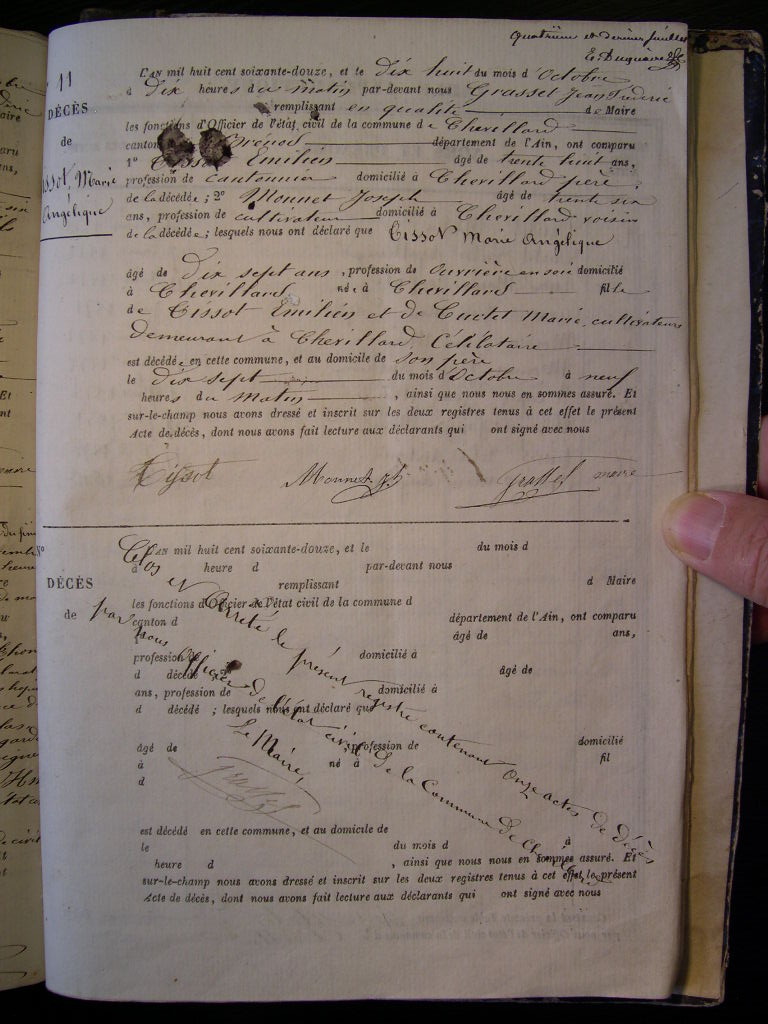 Quatrième et dernier feuillet
N° 11
DÉCÈS
de
Tissot Marie
Angélique
L'AN mil huit cent soixante-douze, et le dix huit du mois d'Octobre
à Dix heures du matin par-devant nous Grasset Jean
remplissant en qualité de Maire
les fonctions d'Officier de l'état civil de la commune de Chevillard
canton Brénod département de l'Ain, ont comparu
1° Tissot Emilien âgé de trente ans,
profession de cantonnier domicilié à Chevillard père
de la décédée; 2° Monnet Joseph âgé de trente six
ans, profession de cultivateur domicilié à Chevillard voisin
de la décédée; lesquels nous ont déclaré que Tissot Marie Angélique
âgé de Dix sept ans, profession de Ouvrière en soie domicilié
à Chevillard née à Chevillard fille
de Tissot Emilien et de Cuctet Marie, cultivateurs
demeurant à Chevillard, Célibataire
est décédée en cette commune, et au domicile de son père
le Dix sept du mois d'Octobre à neuf
heures du matin, ainsi que nous nous en sommes assuré. Et
sur-le-champ nous avons dressé et inscrit sur les deux registres tenus à cet effet le présent
Acte de décès, dont nous avons fait lecture aux déclarants qui ont signé avec nous
Tissot Monnet Grasset maire
N°
DÉCÈS
de
L'AN mil huit cent soixante-douze, et le du mois d
à heure d par-devant nous
remplissant d Maire
les fonctions d'Officier de l'état civil de la commune d
canton d département de l'Ain, ont comparu
âgé de ans,
profession de domicilié à
d décédé âgé de
ans, profession de domicilié à
d décédé ; lesquels nous ont déclaré que
âgé de profession de domicilié
à né à fil
d
est décédé en cette commune, et au domicile de
le du mois d à
heure d , ainsi que nous nous en sommes assuré. Et
sur-le-champ nous avons dressé et inscrit sur les deux registres tenus à cet effet le présent
Acte de décès, dont nous avons fait lecture aux déclarants qui ont signé avec nous
Clos et Arrêté le présent registre contenant onze actes de décès
par nous Officier de l'état civil de la Commune de Chevillard
Le Maire,
Grasset